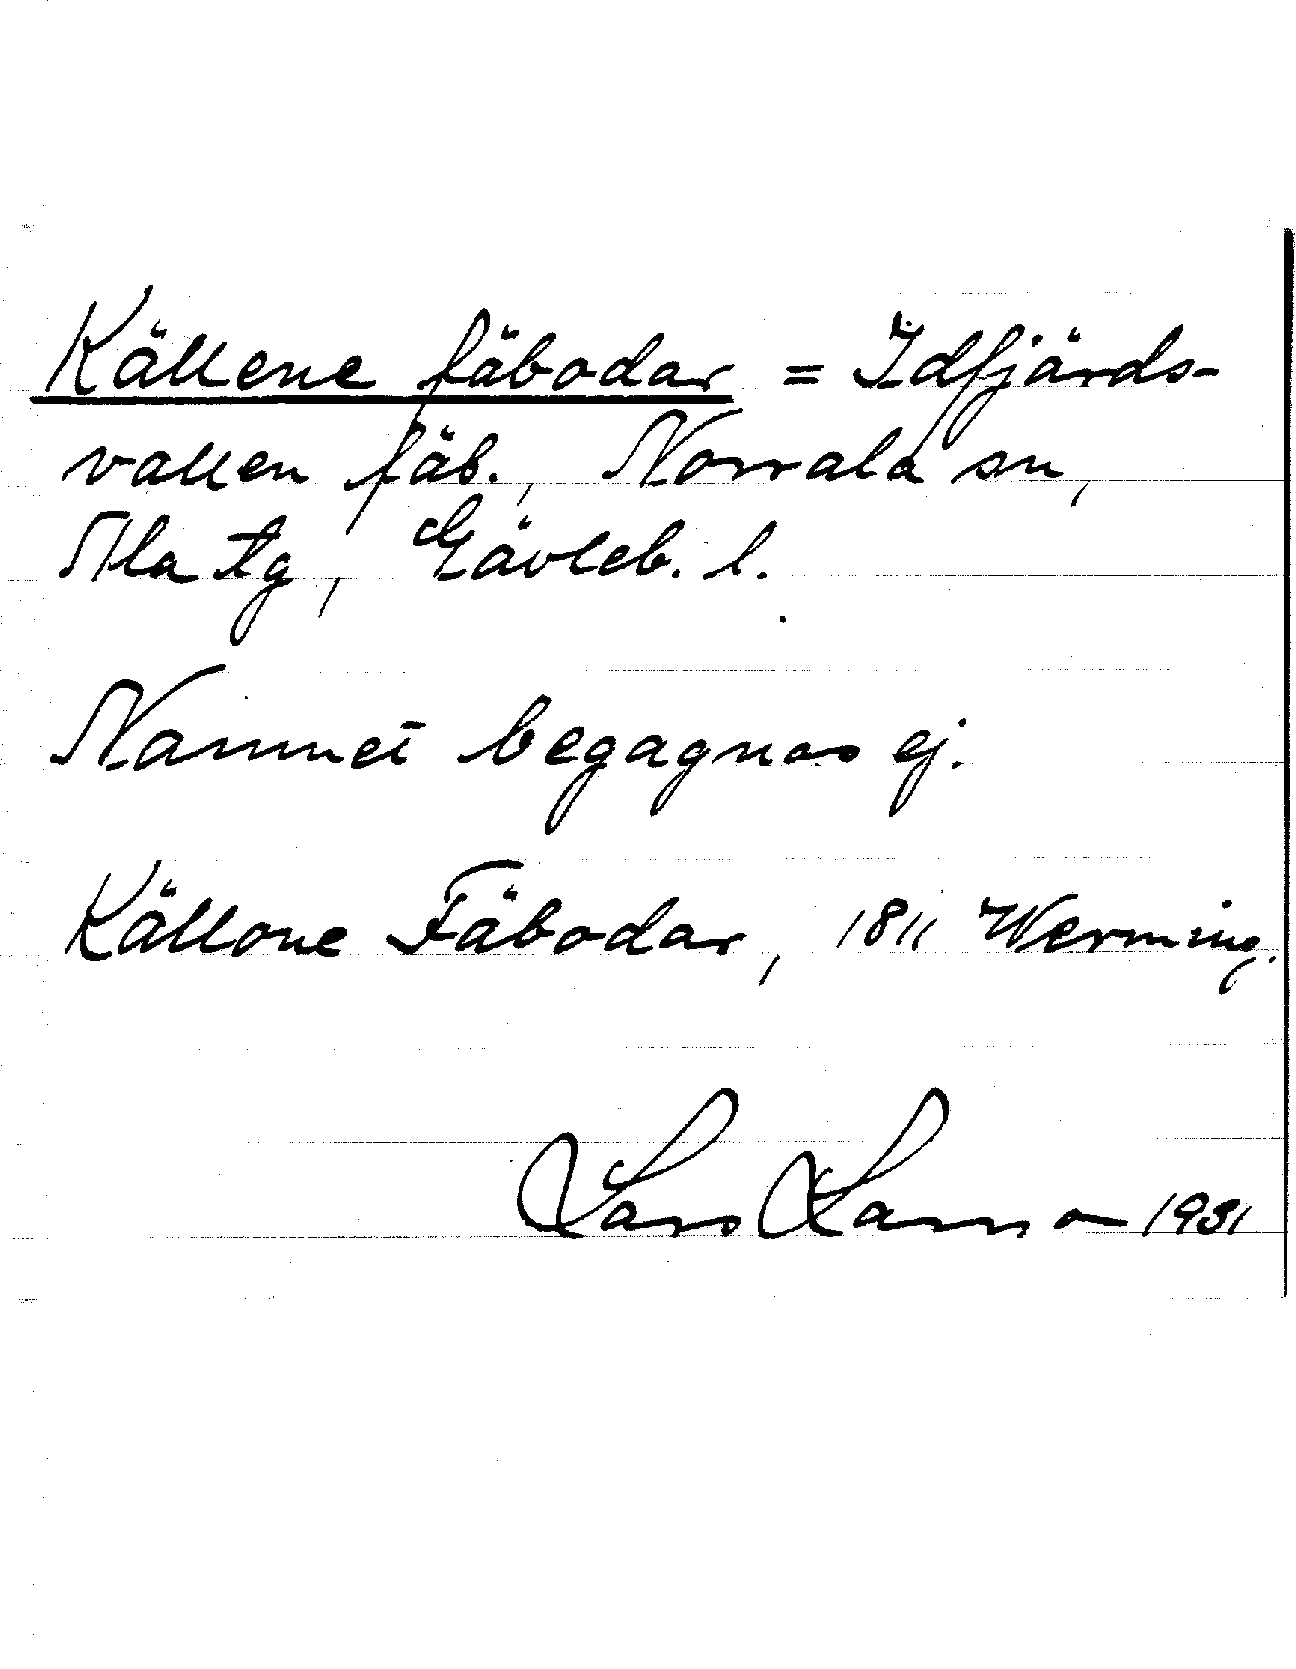 Källene fäbodar = Idfjärds-
vallen fäb., Norrala sn,
Ala tg, Gävleb. l.
Namnet begagnas ej.
Källone Fäbodar, 1811 Werming.
Lars Larsson 1931